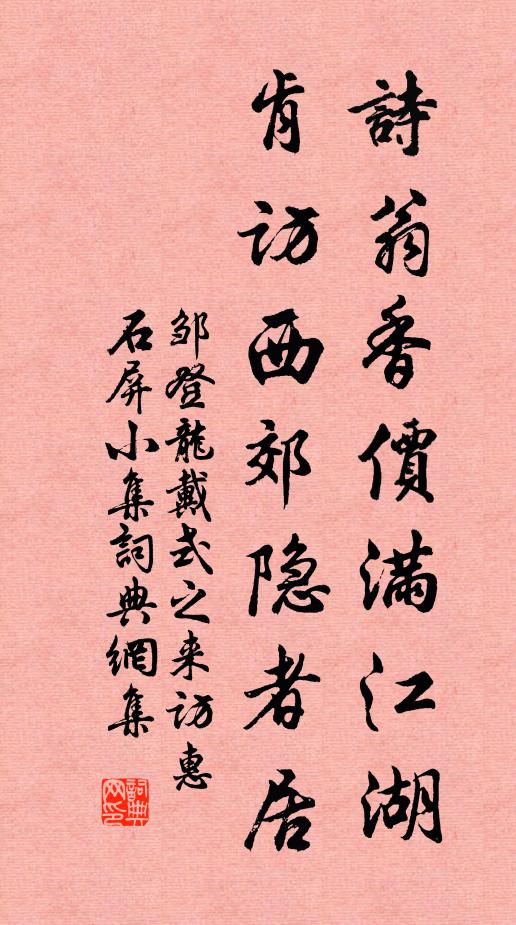 詩翁香價滿江湖
肯访西郊隐者居
邹登龍戴式之来访惠
石屏小集詞典網集
詞典网印